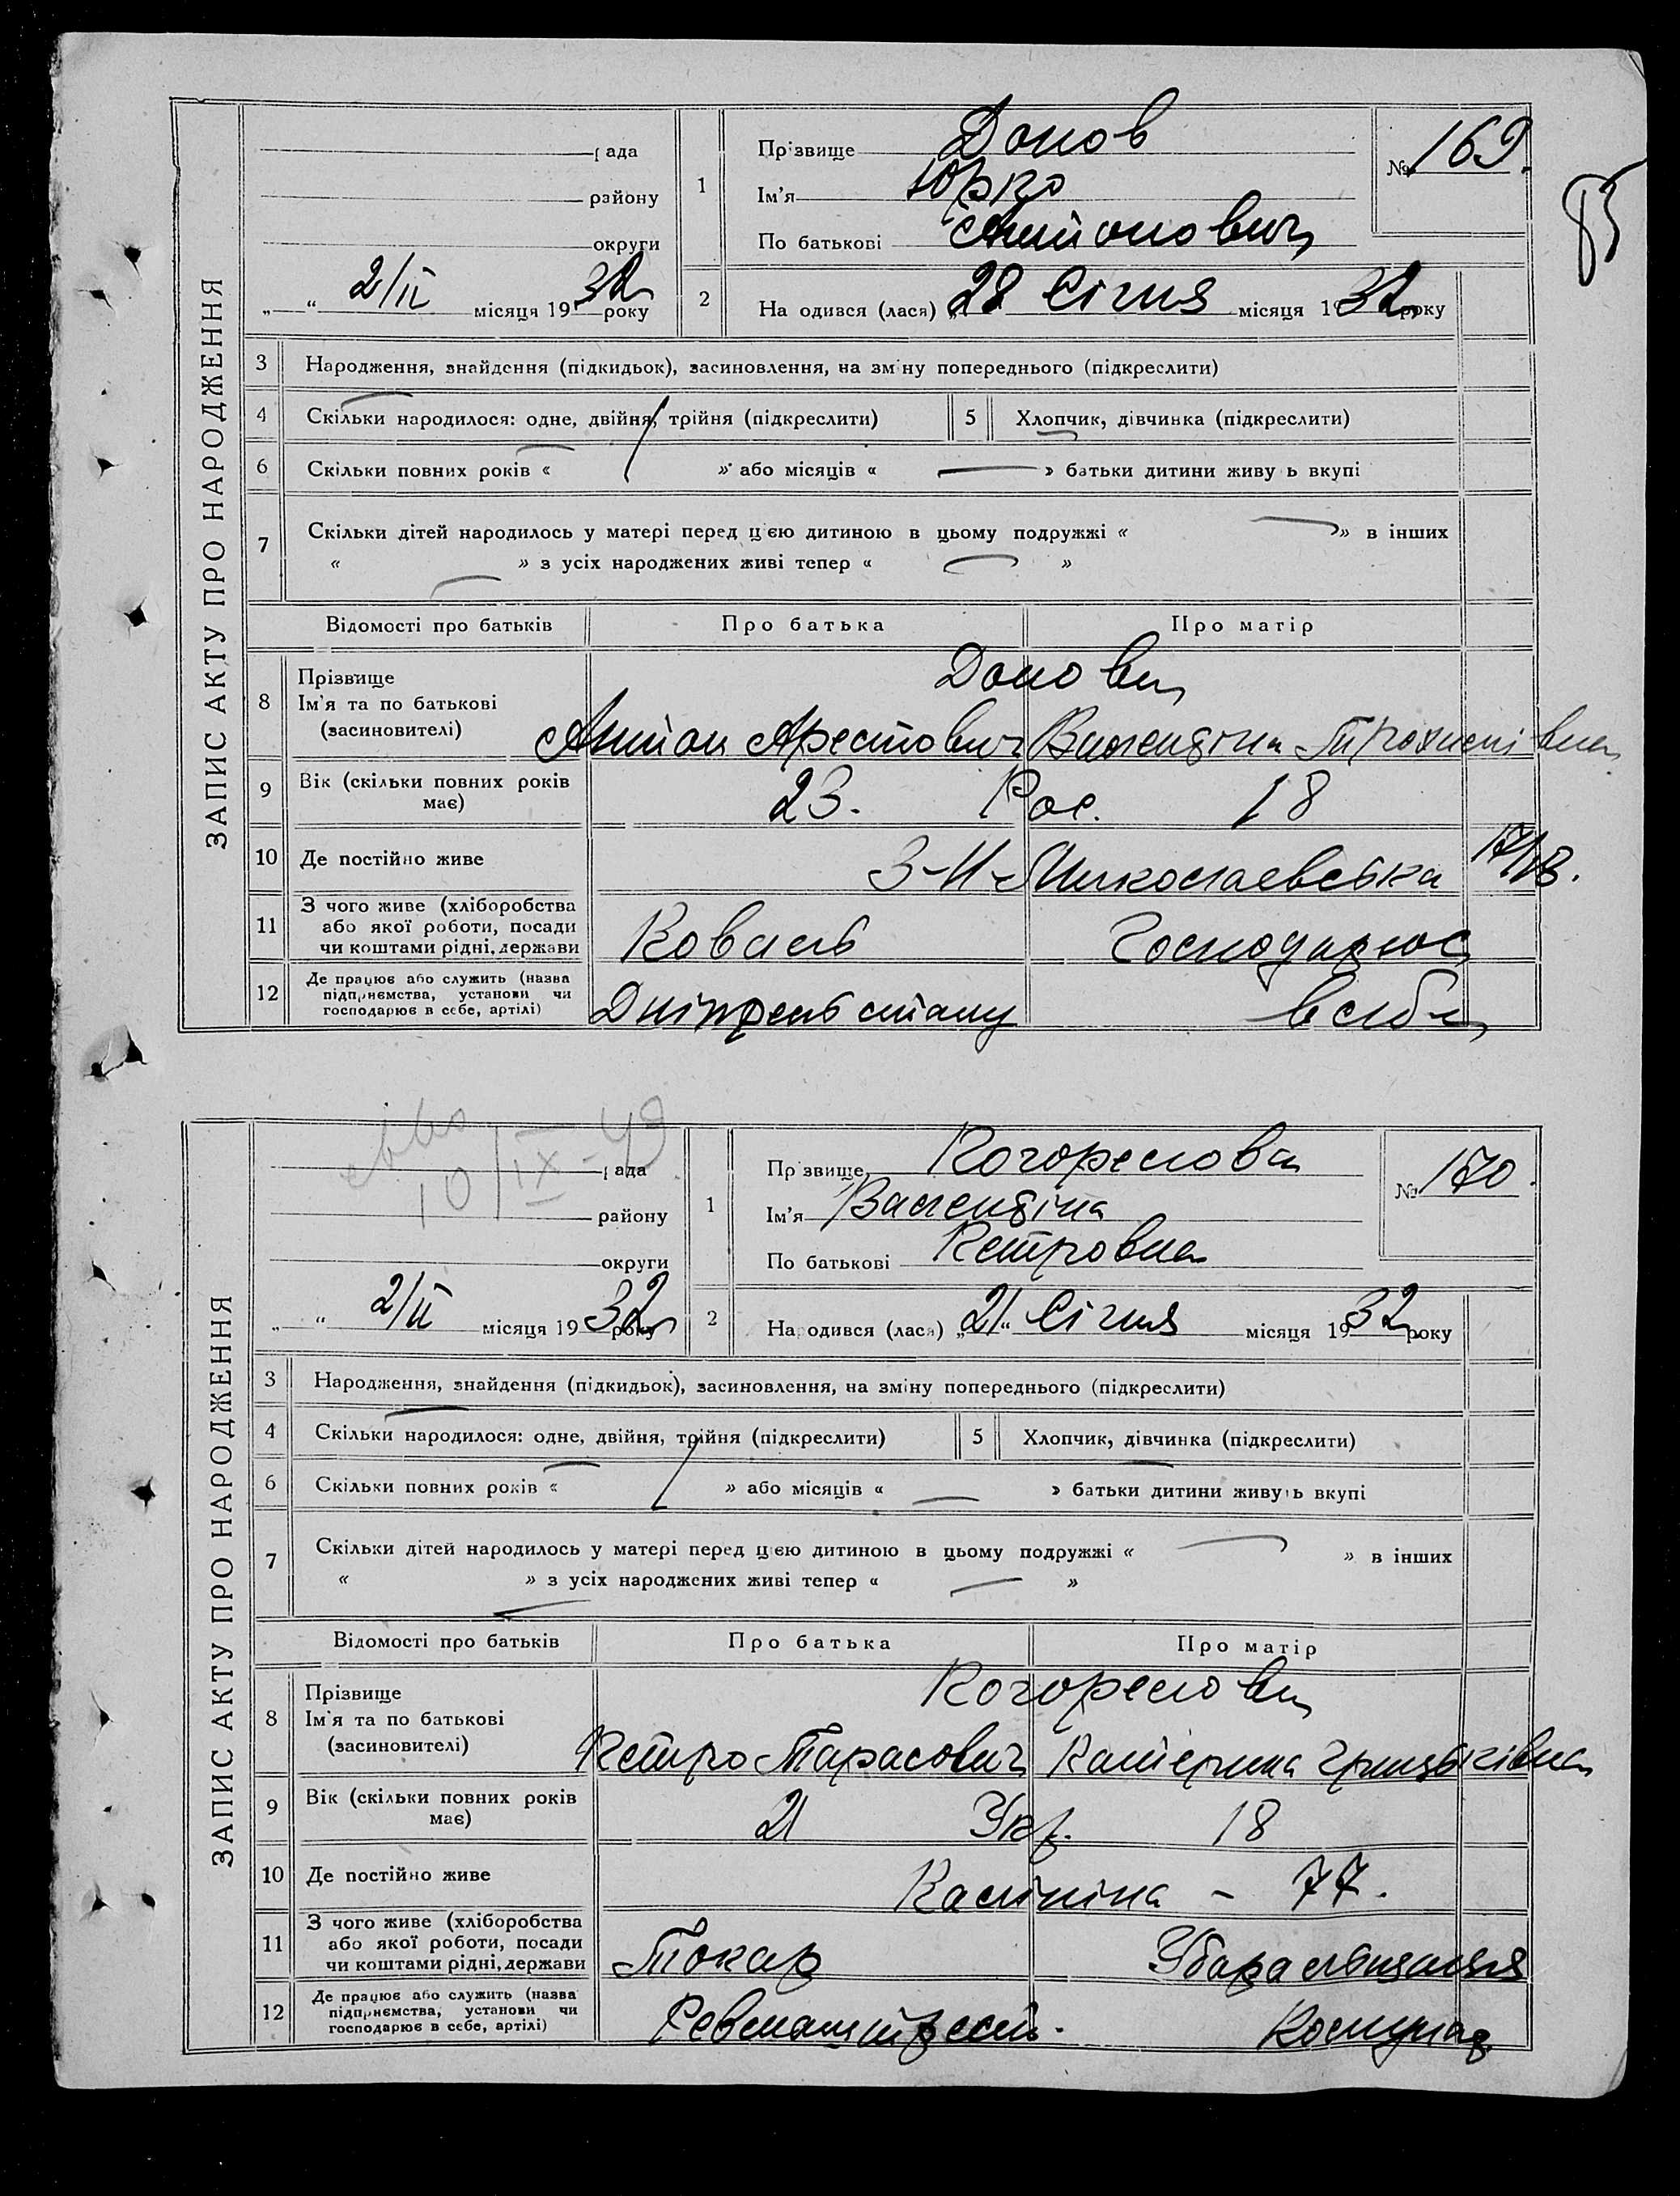 ЗАПИС АКТУ ПРО НАРОДЖЕННЯ
рада
району
округи
„ “ 2/ІІ місяця 1932 року
1 Прізвище Донов
Ім'я Юрко
По батькові Антонович
№ 169.
85
2 Народився (лася) „28 Січня місяця 1932 року
3 Народження, знайдення (підкидьок), засиновлення, на зміну попереднього (підкреслити)
4 Скільки народилося: одне, двійня, трійня (підкреслити) 5 Хлопчик, дівчинка (підкреслити)
6 Скільки повних років « » або місяців « — » батьки дитини живуть вкупі
7 Скільки дітей народилось у матері перед цією дитиною в цьому подружжі « — » в інших
« — » з усіх народжених живі тепер « — »
Відомості про батьків Про батька Про матір
8 Прізвище
Ім'я та по батькові
(засиновителі)
Донови
Антон Арестович Валендіна Трохимівна
9 Вік (скільки повних років має) 23. Рос. 18
10 Де постійно живе 3-Н-Миколаевська 17/13.
11 З чого живе (хліборобства або якої роботи, посади чи коштами рідні, держави Коваль Господарює
12 Де працює або служить (назва підприємства, установи чи господарює в себе, артілі)
ЗАПИС АКТУ ПРО НАРОДЖЕННЯ
10/IX-49
рада
району
округи
„ “ 2/ІІ місяця 1932 року
1 Прізвище
Ім'я Валендіна
По батькові Петровна
№ 170.
2 Народився (лася) „21“ Січня місяця 1932 року
3 Народження, знайдення (підкидьок), засиновлення, на зміну попереднього (підкреслити)
4 Скільки народилося: одне, двійня, трійня (підкреслити) 5 Хлопчик, дівчинка (підкреслити)
6 Скільки повних років « » або місяців « — » батьки дитини живуть вкупі
7 Скільки дітей народилось у матері перед цією дитиною в цьому подружжі « — » в інших
« — » з усіх народжених живі тепер « — »
Відомості про батьків Про батька Про матір
8 Прізвище
Ім'я та по батькові
(засиновителі)
Петро Тарасович Катерина Грицьківна
9 Вік (скільки повних років має) 21 Укр. 18
10 Де постійно живе Калініна – 77.
11 З чого живе (хліборобства або якої роботи, посади чи коштами рідні, держави Токар Убаральниця
12 Де працює або служить (назва підприємства, установи чи господарює в себе, артілі)